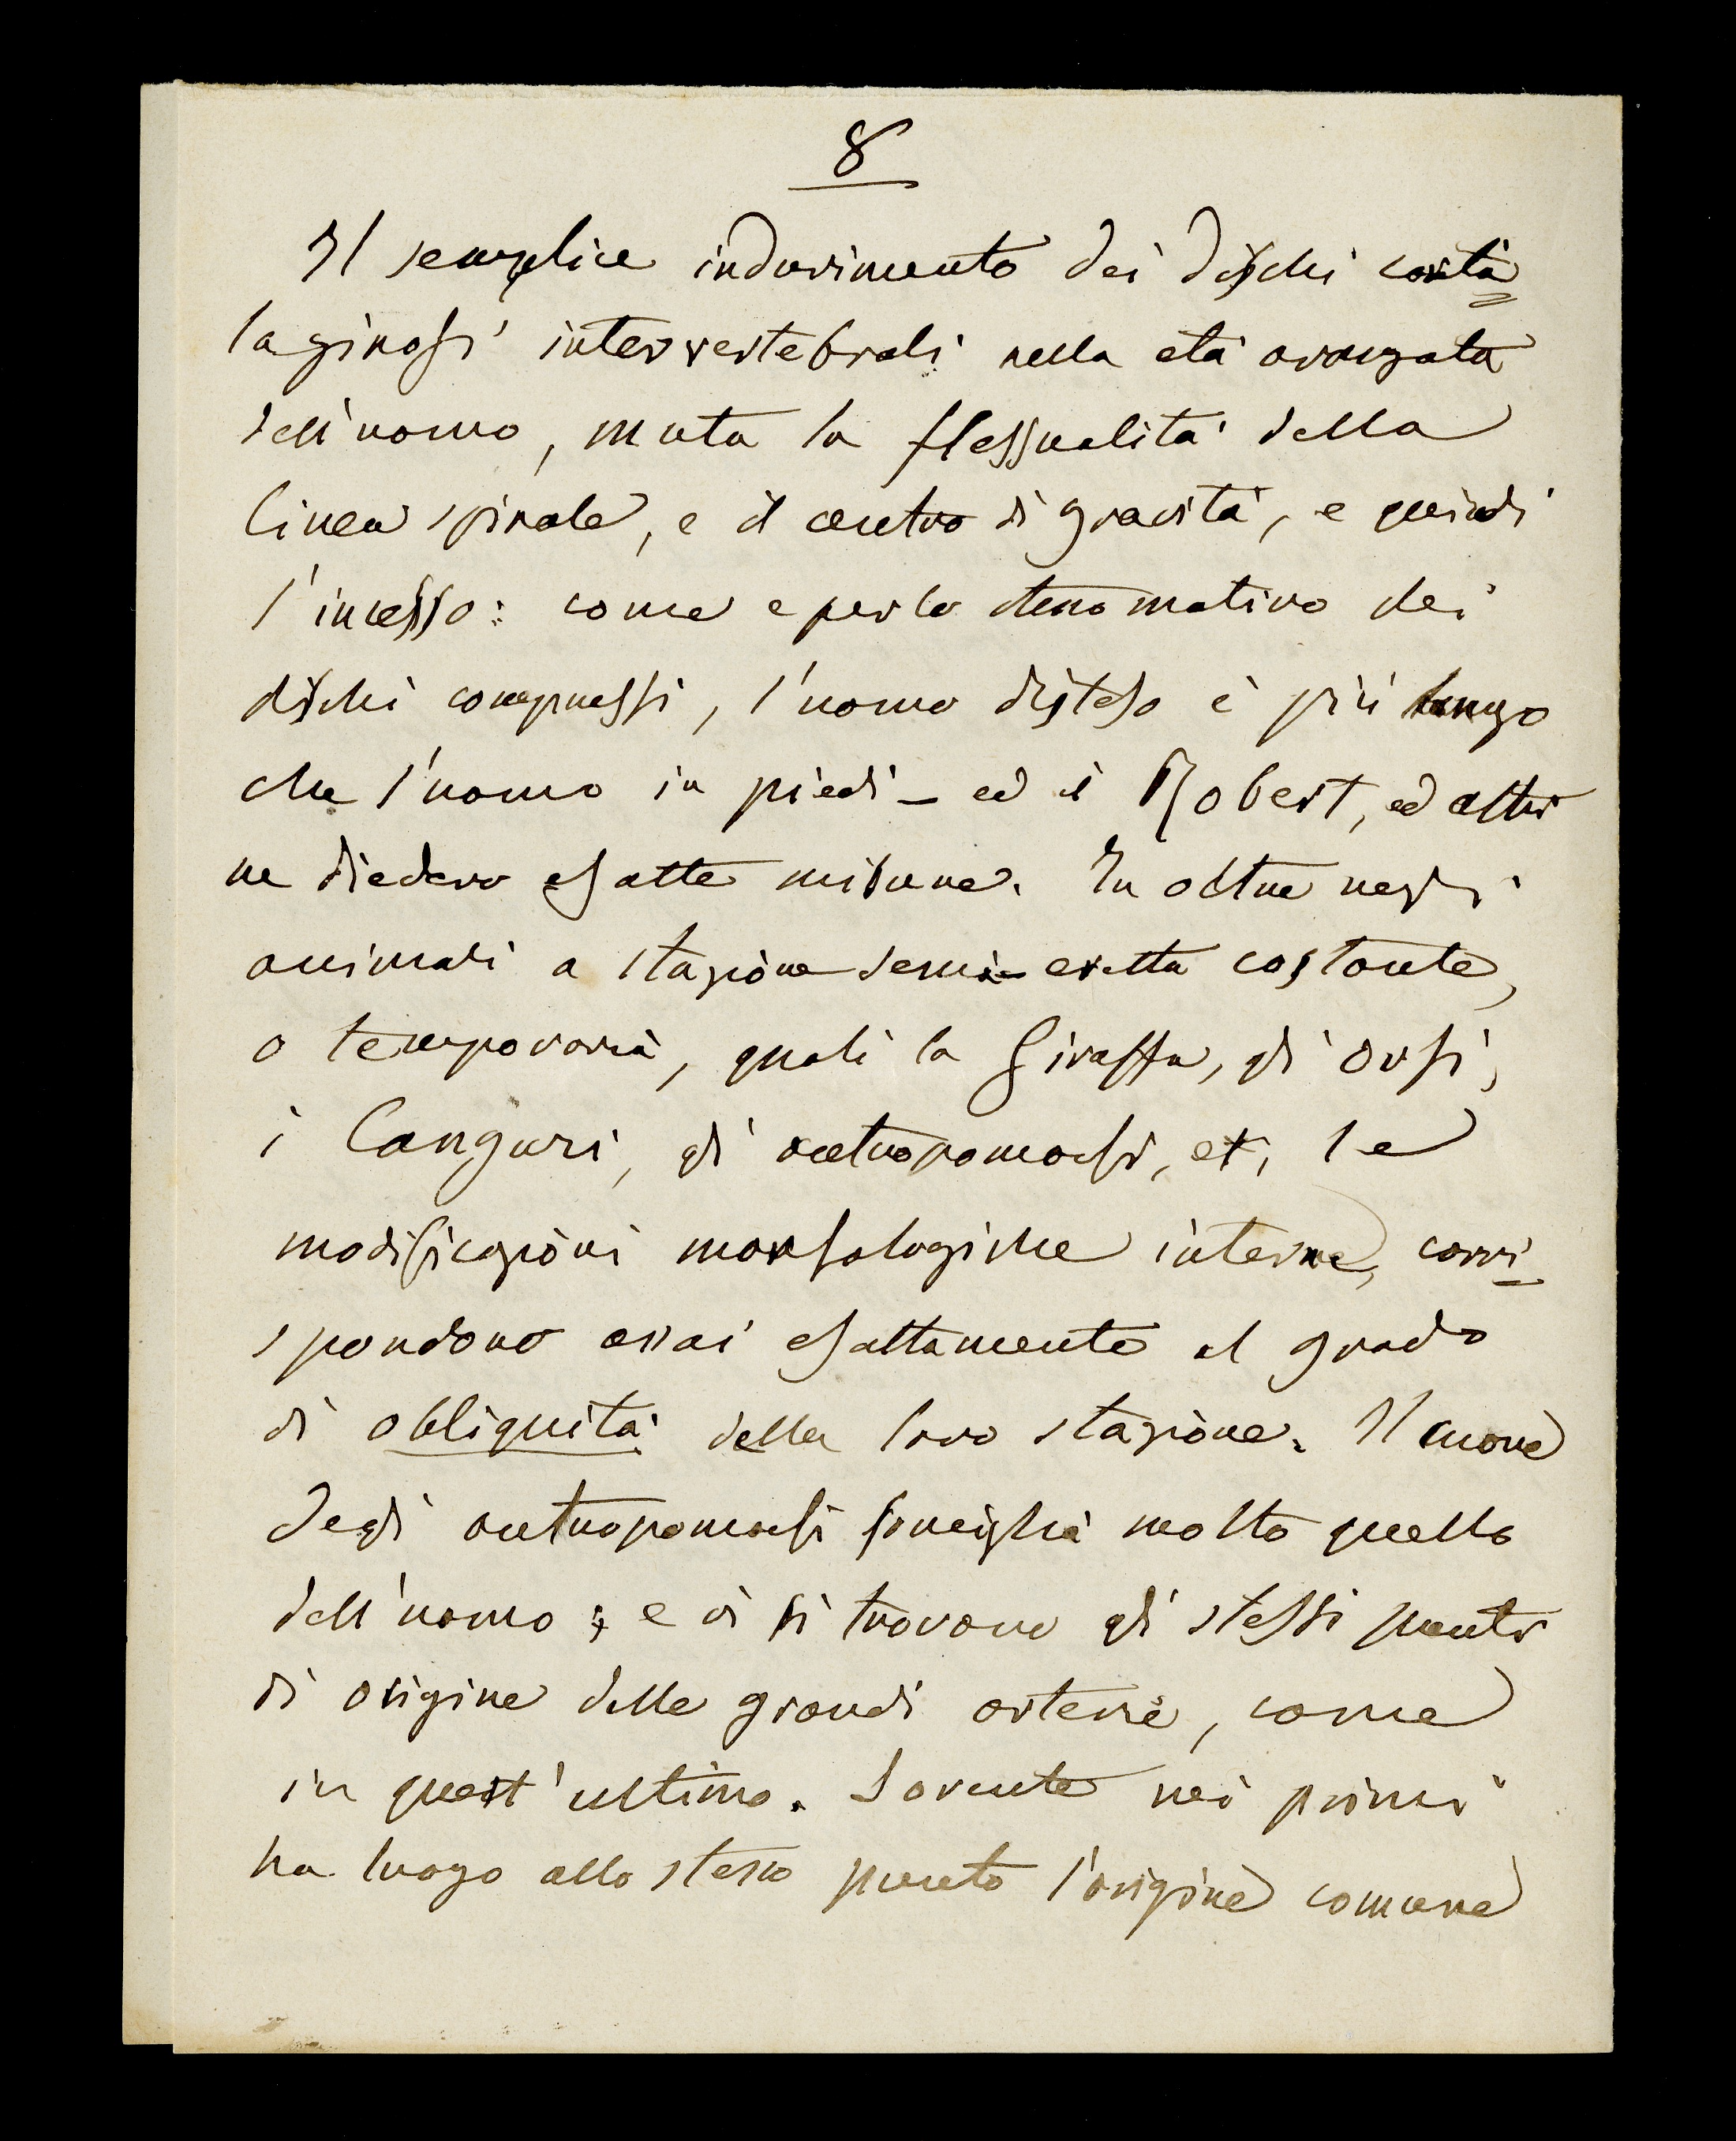 8
Il semplice indurimento dei dischi carti=
laginosi intervertebrali nella età avanzata
dell'uomo, muta la flessualità della
linea spinale, e il centro di gravità, e quindi
l'incesso: come e per lo stesso motivo dei
dischi compressi, l'uomo disteso è più lungo
che l'uomo in piedi - ed i Robert, ed altri
ne diedero esatte misure. In oltre negli
animali a stazione semi-eretta costante,
o temporaria, quali la Giraffa, gli orsi,
i Canguri, gli antropomorfi, et, le
modificazioni morfologiche interne, corri-
spondono assai esattamente al grado
di obliquità della loro stazione. Il cuore
degli antropomorfi somiglia molto quello
dell'uomo; e vi si trovano gli stessi punti
di origine delle grandi arterie, come
in quest'ultimo. Sovente nei primi
ha luogo allo stesso punto l'origine comune